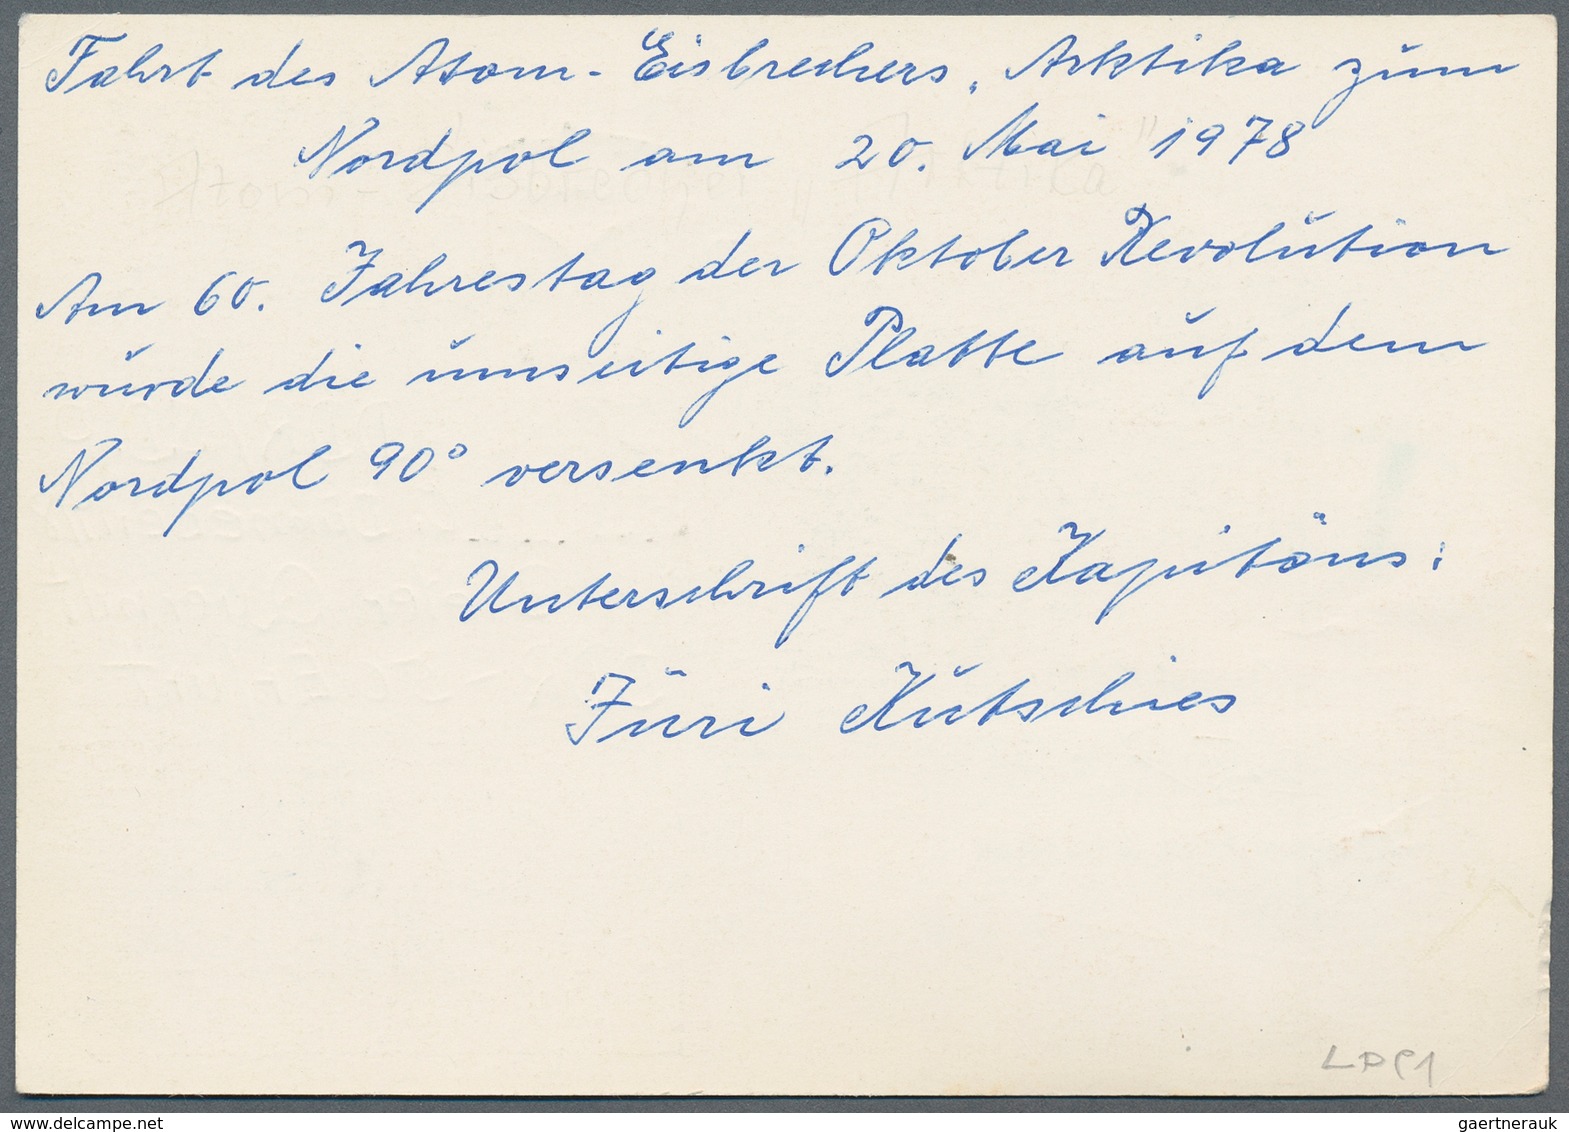 Fahrt des Atom-Eisbrechers „Arktika zum
Nordpol am 20. Mai 1978
Am 60. Jahrestag der Oktober Revolution
wurde die umseitige Platte auf dem
Nordpol 90° versenkt.
Unterschrift des Kapitäns:
Jüri Kutschies
LPC1
www.delcampe.net
gaertnerauk